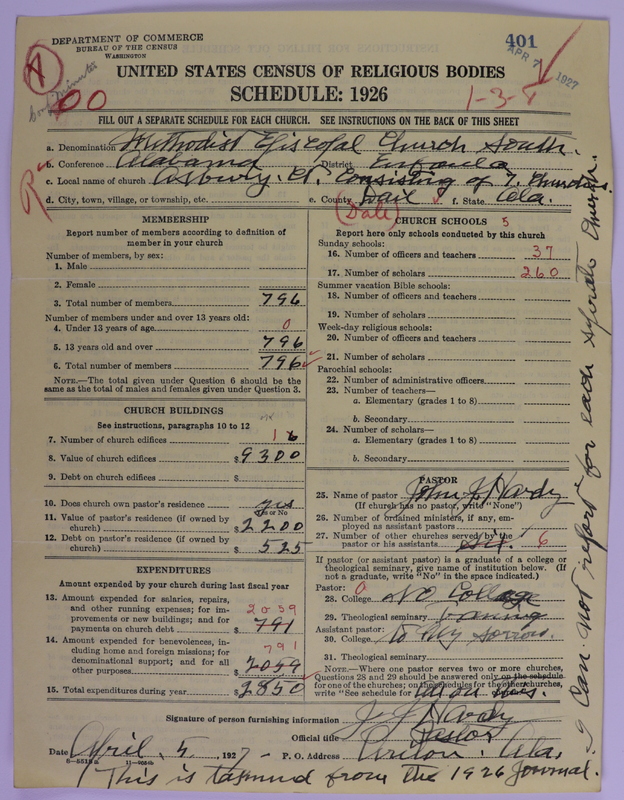 DEPARTMENT OF COMMERCE
BUREAU OF THE CENSUS
WASHINGTON
401
APR 7 1927
UNITED STATES CENSUS OF RELIGIOUS BODIES
SCHEDULE: 1926
1-3-4
FILL OUT A SEPARATE SCHEDULE FOR EACH CHURCH. SEE INSTRUCTIONS ON THE BACK OF THIS SHEET
a. Denomination Methodist Episcopal Church South.
b. Conference Alabama District Eufaula
c. Local name of church Asbury. Ct. Consisting of 7. Churches
d. City, town, village, or township, etc. e. County Dail f. State Ala.
(Dale)
MEMBERSHIP
Report number of members according to definition of
member in your church
Number of members, by sex:
1. Male
2. Female
3. Total number of members 796
Number of members under and over 13 years old:
4. Under 13 years of age 0
5. 13 years old and over 796
6. Total number of members 796
NOTE.—The total given under Question 6 should be the
same as the total of males and females given under Question 3.
CHURCH BUILDINGS
See instructions, paragraphs 10 to 12
7. Number of church edifices
8. Value of church edifices $9300
9. Debt on church edifices $
10. Does church own pastor's residence yes
Yes or No
11. Value of pastor's residence (if owned by
church) $2200
12. Debt on pastor's residence (if owned by
church) $525
EXPENDITURES
Amount expended by your church during last fiscal year
13. Amount expended for salaries, repairs,
and other running expenses; for im-
provements or new buildings; and for
payments on church debt $791
2059
14. Amount expended for benevolences, in-
cluding home and foreign missions; for
denominational support; and for all
other purposes $2059
791
15. Total expenditures during year $2850
CHURCH SCHOOLS 5
Report here only schools conducted by this church
Sunday schools:
16. Number of officers and teachers 37
17. Number of scholars 260
Summer vacation Bible schools:
18. Number of officers and teachers
19. Number of scholars
Week-day religious schools:
20. Number of officers and teachers
21. Number of scholars
Parochial schools:
22. Number of administrative officers
23. Number of teachers—
a. Elementary (grades 1 to 8)
b. Secondary
24. Number of scholars—
a. Elementary (grades 1 to 8)
b. Secondary
PASTOR
25. Name of pastor John J Hardy
(If church has no pastor, write "None")
26. Number of ordained ministers, if any, em-
ployed as assistant pastors
27. Number of other churches served by the
pastor or his assistants six. 6
If pastor (or assistant pastor) is a graduate of a college or
theological seminary, give name of institution below. (If
not a graduate, write "No" in the space indicated.)
Pastor: 0
28. College No College
29. Theological seminary
Assistant pastor:
30. College to my sorrow.
31. Theological seminary
NOTE.—Where one pastor serves two or more churches,
Questions 28 and 29 should be answered only on the schedule
for one of the churches; on the schedules for the other churches,
write "See schedule for church."
Signature of person furnishing information J. J Hardy
Official title Pastor
Date April, 5, 1927 P. O. Address Ariton. Ala.
This is from the 1926 Journal.
I Can not report for each Church.